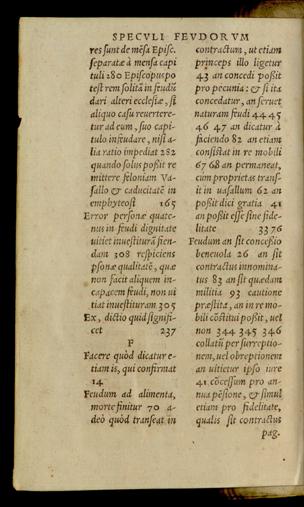 SPECVLI FEVDORVM
res sunt de mēsa Episc.
separatæ à mensa capi
tuli 280 Episcopus po
test rem solitā in feudū
dari alteri ecclesiæ, si
aliquo casu reuertere-
tur ad eum, suo capi-
tulo infeudare, nisi a-
lia ratio impediat 282
quando solus poßit re
mittere feloniam Va-
sallo & caducitatē in
emphyteosi 165
Error personæ quate-
nus in feudi dignitate
uitiet inuestiturā fien-
dam 308 respiciens
psonæ qualitatē, quæ
non facit aliquem in-
capacem feudi, non ui
tiat inuestituram 305
Ex, dictio quid signifi-
cet 237
F
Facere quòd dicatur e-
tiam is, qui confirmat
14
Feudum ad alimenta,
morte finitur 70 a-
deò quòd transeat in
contractum, ut etiam
princeps illo ligetur
43 an concedi poßit
pro pecunia: & si ita
concedatur, an seruet
naturam feudi 44 45
46 47 an dicatur à
faciendo 82 an etiam
consistat in re mobili
67 68 an permaneat,
cum proprietas trans-
it in uasallum 62 an
poßit dici gratia 41
an poßit esse sine fide-
litate 33 76
Feudum an sit concessio
beneuola 26 an sit
contractus innomina-
tus 83 an sit quædam
militia 93 cautione
præstita, an in re mo-
bili cōstitui poßit, uel
non 344 345 346
collatū per surreptio-
nem, uel obreptionem
an uitietur ipso iure
41 cōcessum pro an-
nua pēsione, & simul
etiam pro fidelitate,
qualis sit contractus
pag.